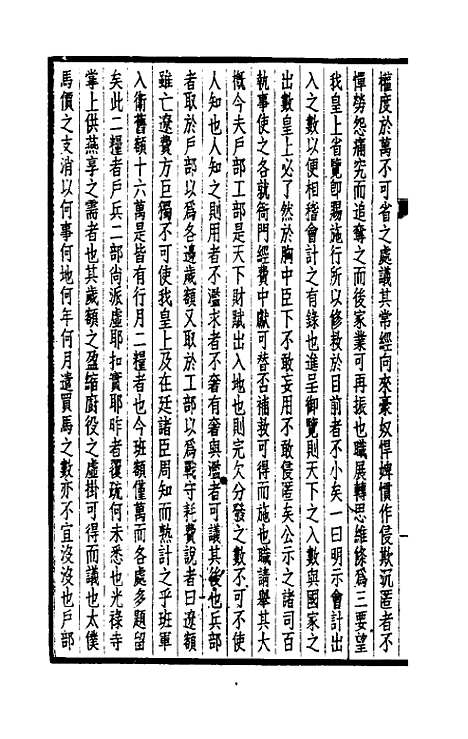 權度於萬不可省之處議其常經向來豪奴悍婢慣作侵欺沉匿者不
憚勞怨痛究而追奪之而後家業可再振也職展轉思維條爲三要望
我皇上省覽卽賜施行所以修救於目前者不小矣一曰明示會計出
入之數以便相稽會計之有錄也進呈御覽則天下之入數與國家之
出數皇上必了然於胸中臣下不敢妄用不敢侵匿矣公示之諸司百
執事使之各就衙門經費中獻可替否補救可得而施也職請舉其大
槪今夫戶部工部是天下財賦出入地也則完欠分發之數不可不使
人知也人知之則用者不濫求者不奢有奢與濫者可議其後也兵部
者取於戶部工部者各邊歲額又取於工部者爲戰守耗費說者曰遼額
雖亡遼費方巨獨不可使我皇上及在廷諸臣周知而熟計之乎班軍
入衛舊額十六萬是皆有行月二糧者也今班額僅萬而各處多題留
矣此二糧者戶兵二部尚派虛耶扣實耶昨者覆疏何未悉也光祿寺
掌上供燕享之需者也其歲額之盈縮廚役之虛掛可得而議也太僕
馬價之支消以何事何地何年何月遣買馬之數亦不宜沒沒也戶部